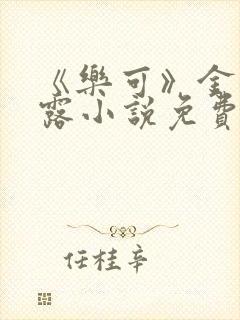 《樂可》金
露小說免費
任桂辛